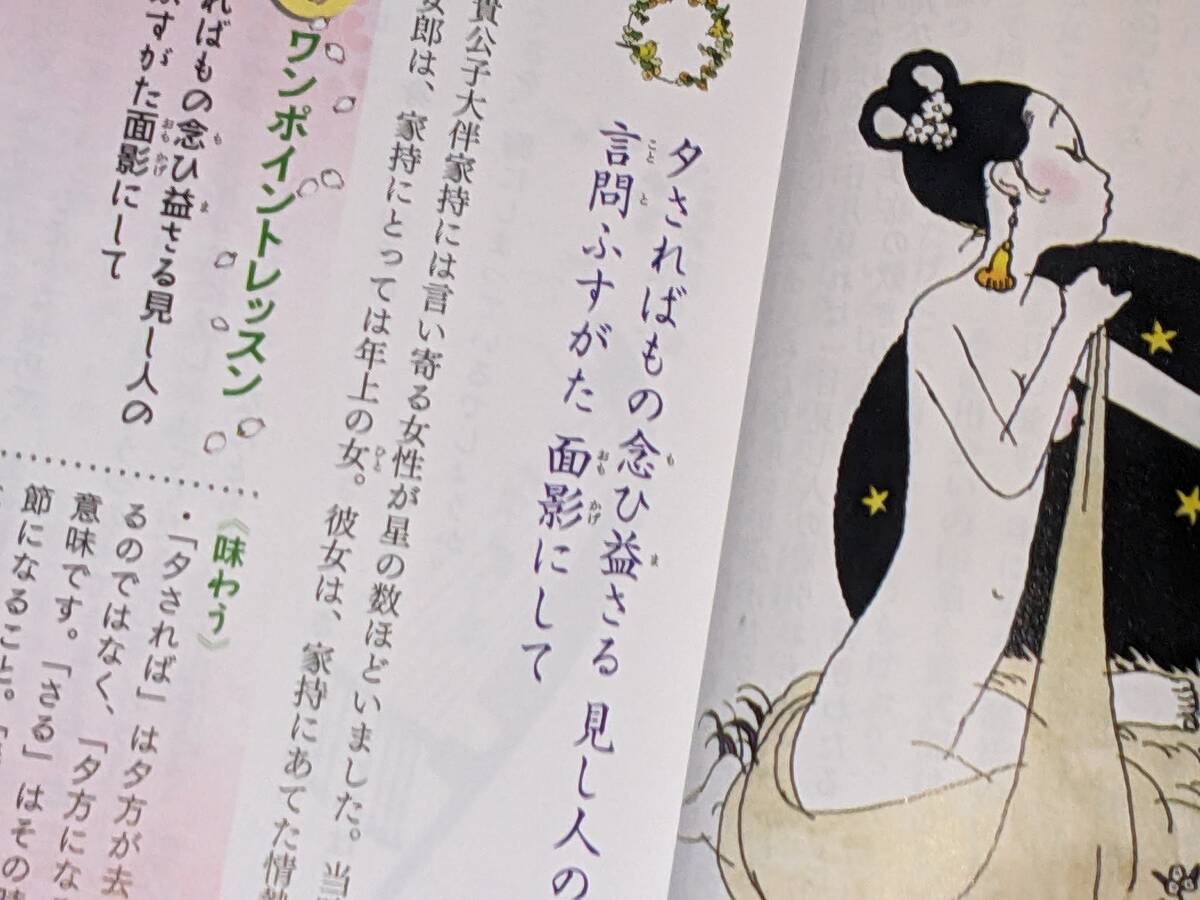 夕さればもの念ひ益さる 見し人の
言問ふすがた 面影にして
貴公子大伴家持には言い寄る女性が星の数ほどいました。当
女郎は、家持にとっては年上の女。彼女は、家持にあてた情熱
ワンポイントレッスン
ればもの念ひ益さる見し人の
ふすがた面影にして
《味わう》
・「夕されば」は夕方が去
るのではなく、「夕方にな
意味です。「さる」はその時
節になること。